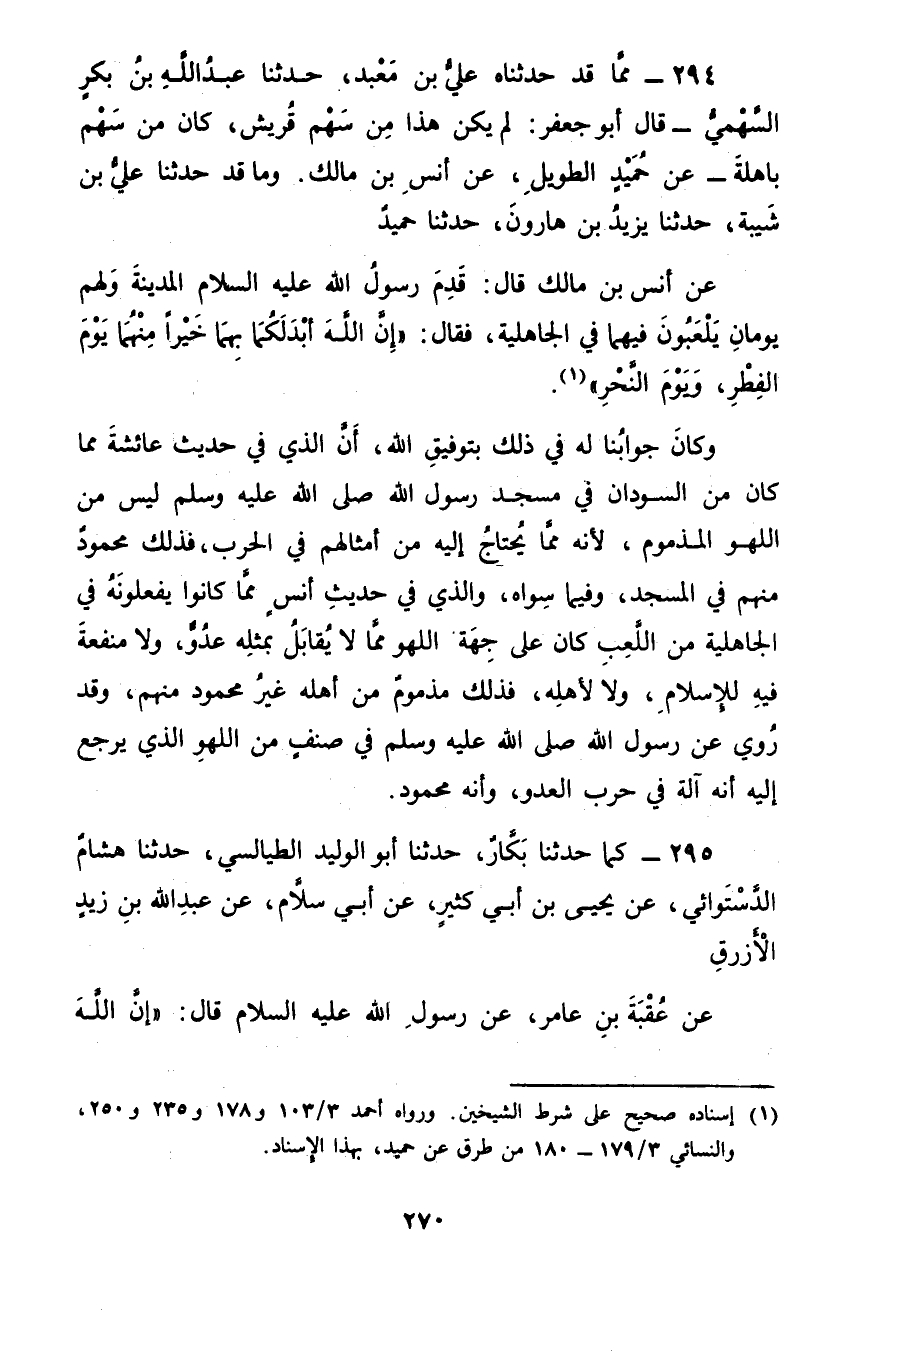 ٢٩٤ ــ ممَّا قد حدثناه عليُّ بن مَعْبد، حـدثنا عبـدُاللَّـهِ بنُ بكرٍ
السَّهْميُّ ــ قال أبو جعفر: لم يكن هذا مِن سَهْم قُريش، كان من سَهْم
باهلةَ ــ عن حُمَيْدٍ الطويلِ، عن أنسِ بن مالك. وما قد حدثنا عليُّ بن
شَيبة، حدثنا يزيدُ بن هارونَ، حدثنا حميدٌ
عن أنس بن مالك قال: قَدِمَ رسولُ الله عليه السلام المدينةَ وَلهم
يومانِ يَلْعَبُونَ فيهما في الجاهلية، فقال: «إِنَّ اللَّـهَ أَبْدَلَكُمَا بِهِمَا خَيْراً مِنْهُمَا يَوْمَ
الفِطْرِ، وَيَوْمَ النَّحْرِ»(١).
وكانَ جوابُنا له في ذلك بتوفيقِ الله، أَنَّ الذي في حديث عائشةَ مما
كان من السـودان في مسجـد رسول الله صلى الله عليه وسلم ليس من
اللهـو المـذموم ، لأنه ممَّا يُحتاجُ إليه من أمثالهم في الحرب، فذلك محمودٌ
منهم في المسجد، وفيما سِواه، والذي في حديثِ أنسٍ ممَّا كانوا يفعلونَهُ في
الجاهلية من اللَّعِبِ كان على جِهَة اللهو ممَّا لا يُقابَلُ بمثلِه عدُوٌّ، ولا منفعةَ
فيهِ للإِسلامِ، ولا لأهلِه، فذلك مذمومٌ من أهله غيرُ محمود منهم، وقد
رُوي عن رسول الله صلى الله عليه وسلم في صنفٍ من اللهوِ الذي يرجع
إليه أنه آلة في حرب العدو، وأنه محمود.
٢٩٥ ــ كما حدثنا بَكَّارٌ، حدثنا أبو الوليد الطيالسي، حدثنا هشامٌ
الدَّسْتَوائي، عن يحيـى بن أبـي كثيرٍ، عن أبـي سلَّام، عن عبدِالله بنِ زيدٍ
الْأَزرقِ
عن عُقْبَةَ بنِ عامر، عن رسولِ الله عليه السلام قال: «إنَّ اللَّـهَ
(١) إسناده صحيح على شرط الشيخين. ورواه أحمد ١٠٣/٣ و١٧٨ و٢٣٥ و٢٥٠،
والنسائي ١٧٩/٣ ــ ١٨٠ من طرق عن حميد، بهذا الإِسناد.
٢٧٠